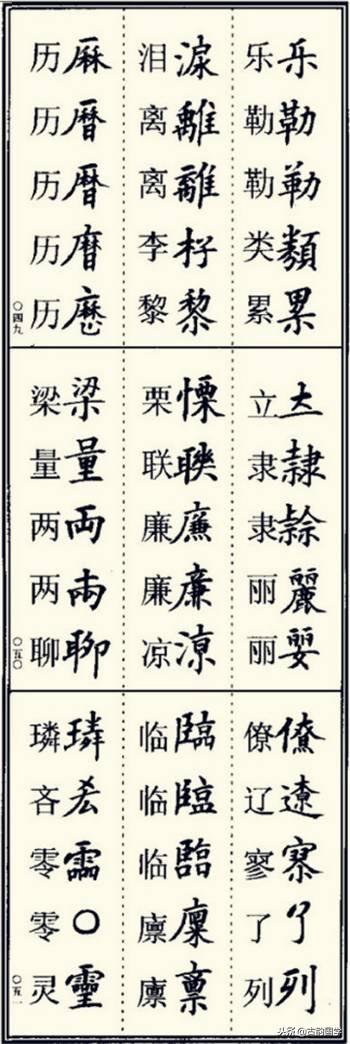 乐
勒 勒
勒 勒
类 類
累 累
泪 淚
离 離
离 離
李 杍
黎 黎
历 厤
历 曆
历 曆
历
历
〇四九
立
隶 隷
隶
丽 麗
丽
栗 慄
联
廉
廉 廉
凉 涼
梁 梁
量 量
两 両
两
聊 聊
〇五〇
僚
辽 遼
寥
了
列 列
临 臨
临 臨
临 臨
廪 廩
廪 稟
璘 璘
吝
零 霝
零 〇
灵 靈
〇五一
头条@古韵国学